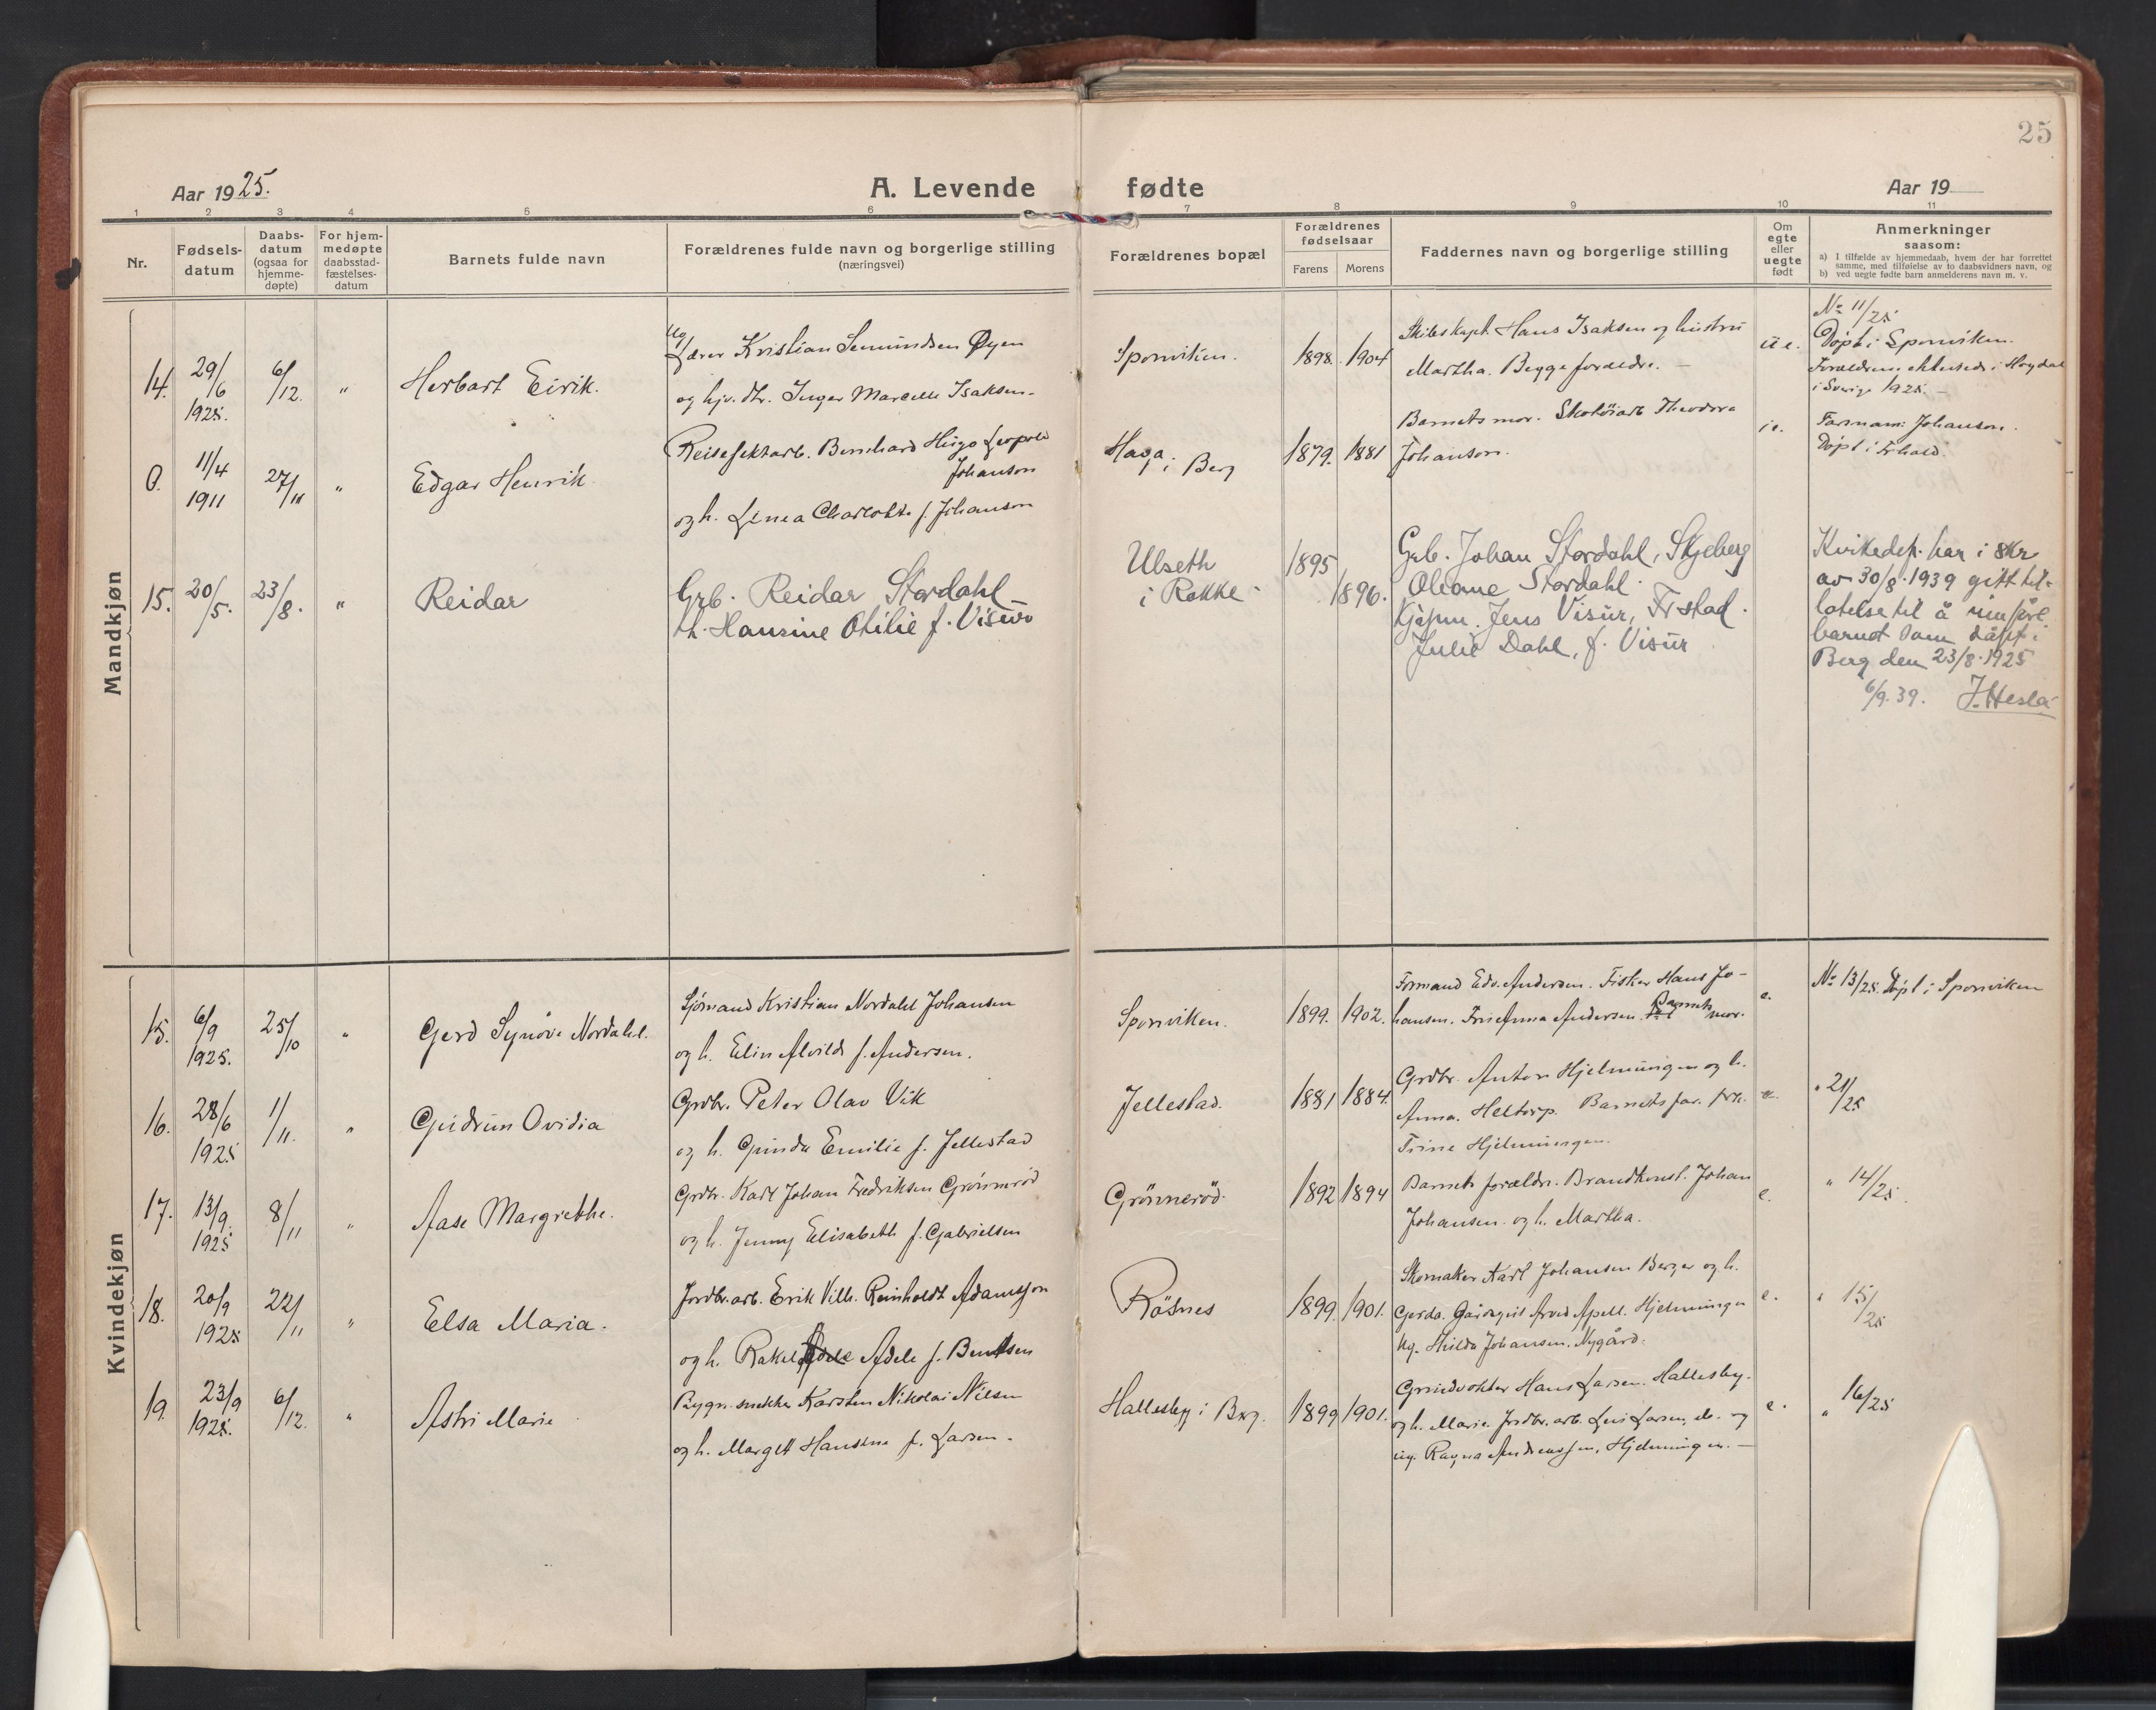 25
Aar 1925.
A. Levende fødte
Aar 19
1 2 3 4 5 6 7 8 9 10 11
Nr.
Fødsels-
datum
Daabs-
datum
(ogsaa for
hjemme-
døpte)
For hjem-
medøpte
daabsstad-
fæstelses-
datum
Barnets fulde navn
Forældrenes fulde navn og borgerlige stilling
(næringsvei)
Forældrenes bopæl
Forældrenes
fødselsaar
Farens Morens
Faddernes navn og borgerlige stilling
Om
egte
eller
uegte
født
Anmerkninger
saasom:
a) I tilfælde av hjemmedaab, hvem der har forrettet
samme, med tilføielse av to daabsvidners navn, og
b) ved uegte fødte barn anmelderens navn m. v.
Mandkjøn
14. 29/6 1925. 6/12. " Herbart Eirik.
Ug
Lærer Kristian Semundsen Øyen
og hjv. dtr. Inger Marcelle Isaksen.
Sponviken. 1898. 1904
Skibskapt. Hans Isaksen og hustru
Martha. Begge forældre. —
u e.
No 11/25
Døpt i Sponviken.
i Sverige 1925. —
0. 11/4 1911 27/11 " Edgar Henrik
Bernhard Hugo Leopold
Johanson
og h. Linea Charlotte f. Johanson
Haga i Berg 1879. 1881
Barnets mor. Skotöiarb Theodora
Johanson.
Farsnavn: Johanson.
Døpt i Frhald.
15. 20/5. 23/8. " Reidar
Grb. Reidar Stordahl
h. Hansine Otilie f. Visur
Ulseth
i Rokke 1895 1896.
Grb. Johan Stordahl, Skjeberg
Oleane Stordahl
Kjøpm. Jens Visur, Fr.stad.
Julie Dahl, f. Visur
Kirkedep. har i skr.
av 30/8. 1939 gitt til-
latelse til å innføre
barnet som døpt i
Berg den 23/8. 1925
6/9. 39. J. Hesla
Kvindekjøn
15. 6/9 1925. 25/10 " Gerd Synöve Nordahl.
Sjömand Kristian Nordahl Johansen
og h. Elin Alvilde f. Andersen.
Sponviken. 1899. 1902.
Formand Edv. Andersen. Fisker Hans Jo-
hansen. Fru Anna Andersen. Barnets mor.
e.
No 13/25. Döpt i Sponviken
16. 28/6 1925 1/11. " Gudrun Ovidia
Grdbr. Peter Olav Vik
og h. Gunda Emilie f. Jellestad
Jellestad. 1881 1884.
Grdbr. Anton Hjelmungen og h.
Anna. Heltorp. Barnets far. frk.
Trine Hjelmungen.
e.
" 21/25
17. 13/9. 1925 8/11 " Aase Margrethe.
Grdbr. Karl Johan Fredriksen Grönneröd
og h. Jenny Elisabeth f. Gabrielsen
Grönneröd. 1892 1894
Barnets forældre. Brandkonst. Johan
Johansen og h. Martha.
e.
" 14/25.
18. 20/9 1925 22/11 " Elsa Maria.
Jordbr.arb. Erik Vilh. Reinholdt Adamsson
og h. Rakel Adele f. Bentsen
Rösnes 1899. 1901.
Skomaker Karl Johansen Berger og h.
Gerda. Arvid Apell. Hjelmungen
Ug. Hilda Johansen. Nygård.
e.
" 15/25
19. 23/9 1925. 6/12. " Astri Marie
Bygn. snekker Karsten Nikolai Nilsen
og h. Margit Hansine f. Larsen.
Hallesby i Berg. 1899 1901.
Hans Larsen. Hallesby.
og h. Marie. Jordbr. arb. Larsen, do. og
ug. Ragna Andreassen, Hjelmungen. —
e.
" 16/25